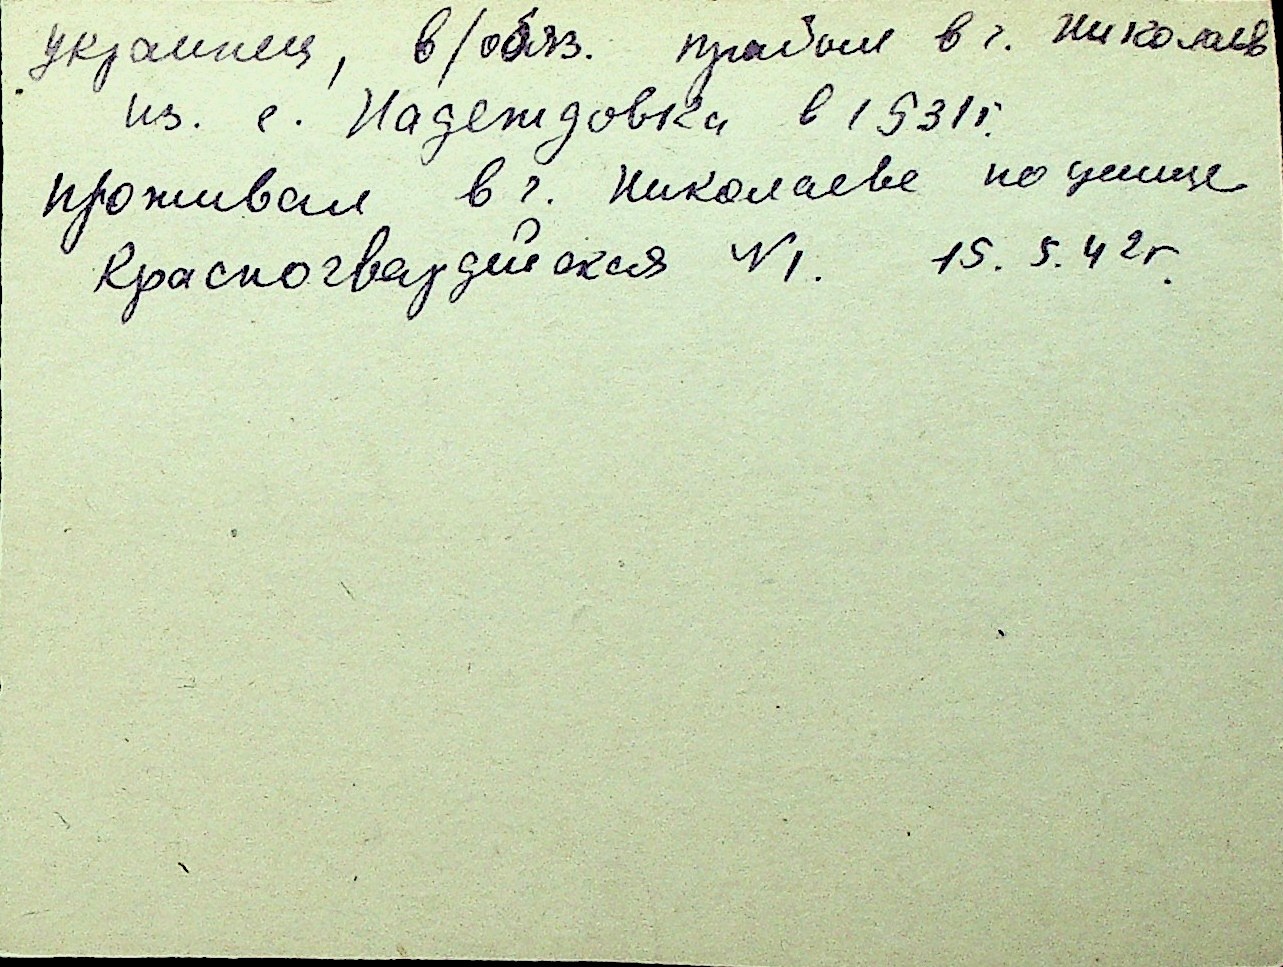 украинец, в/обяз. прибыл в г. Николаев
из. с. Надеждовка в 1931г.
проживал в г. Николаеве по улице
Красногвардейская N1. 15.5.42г.